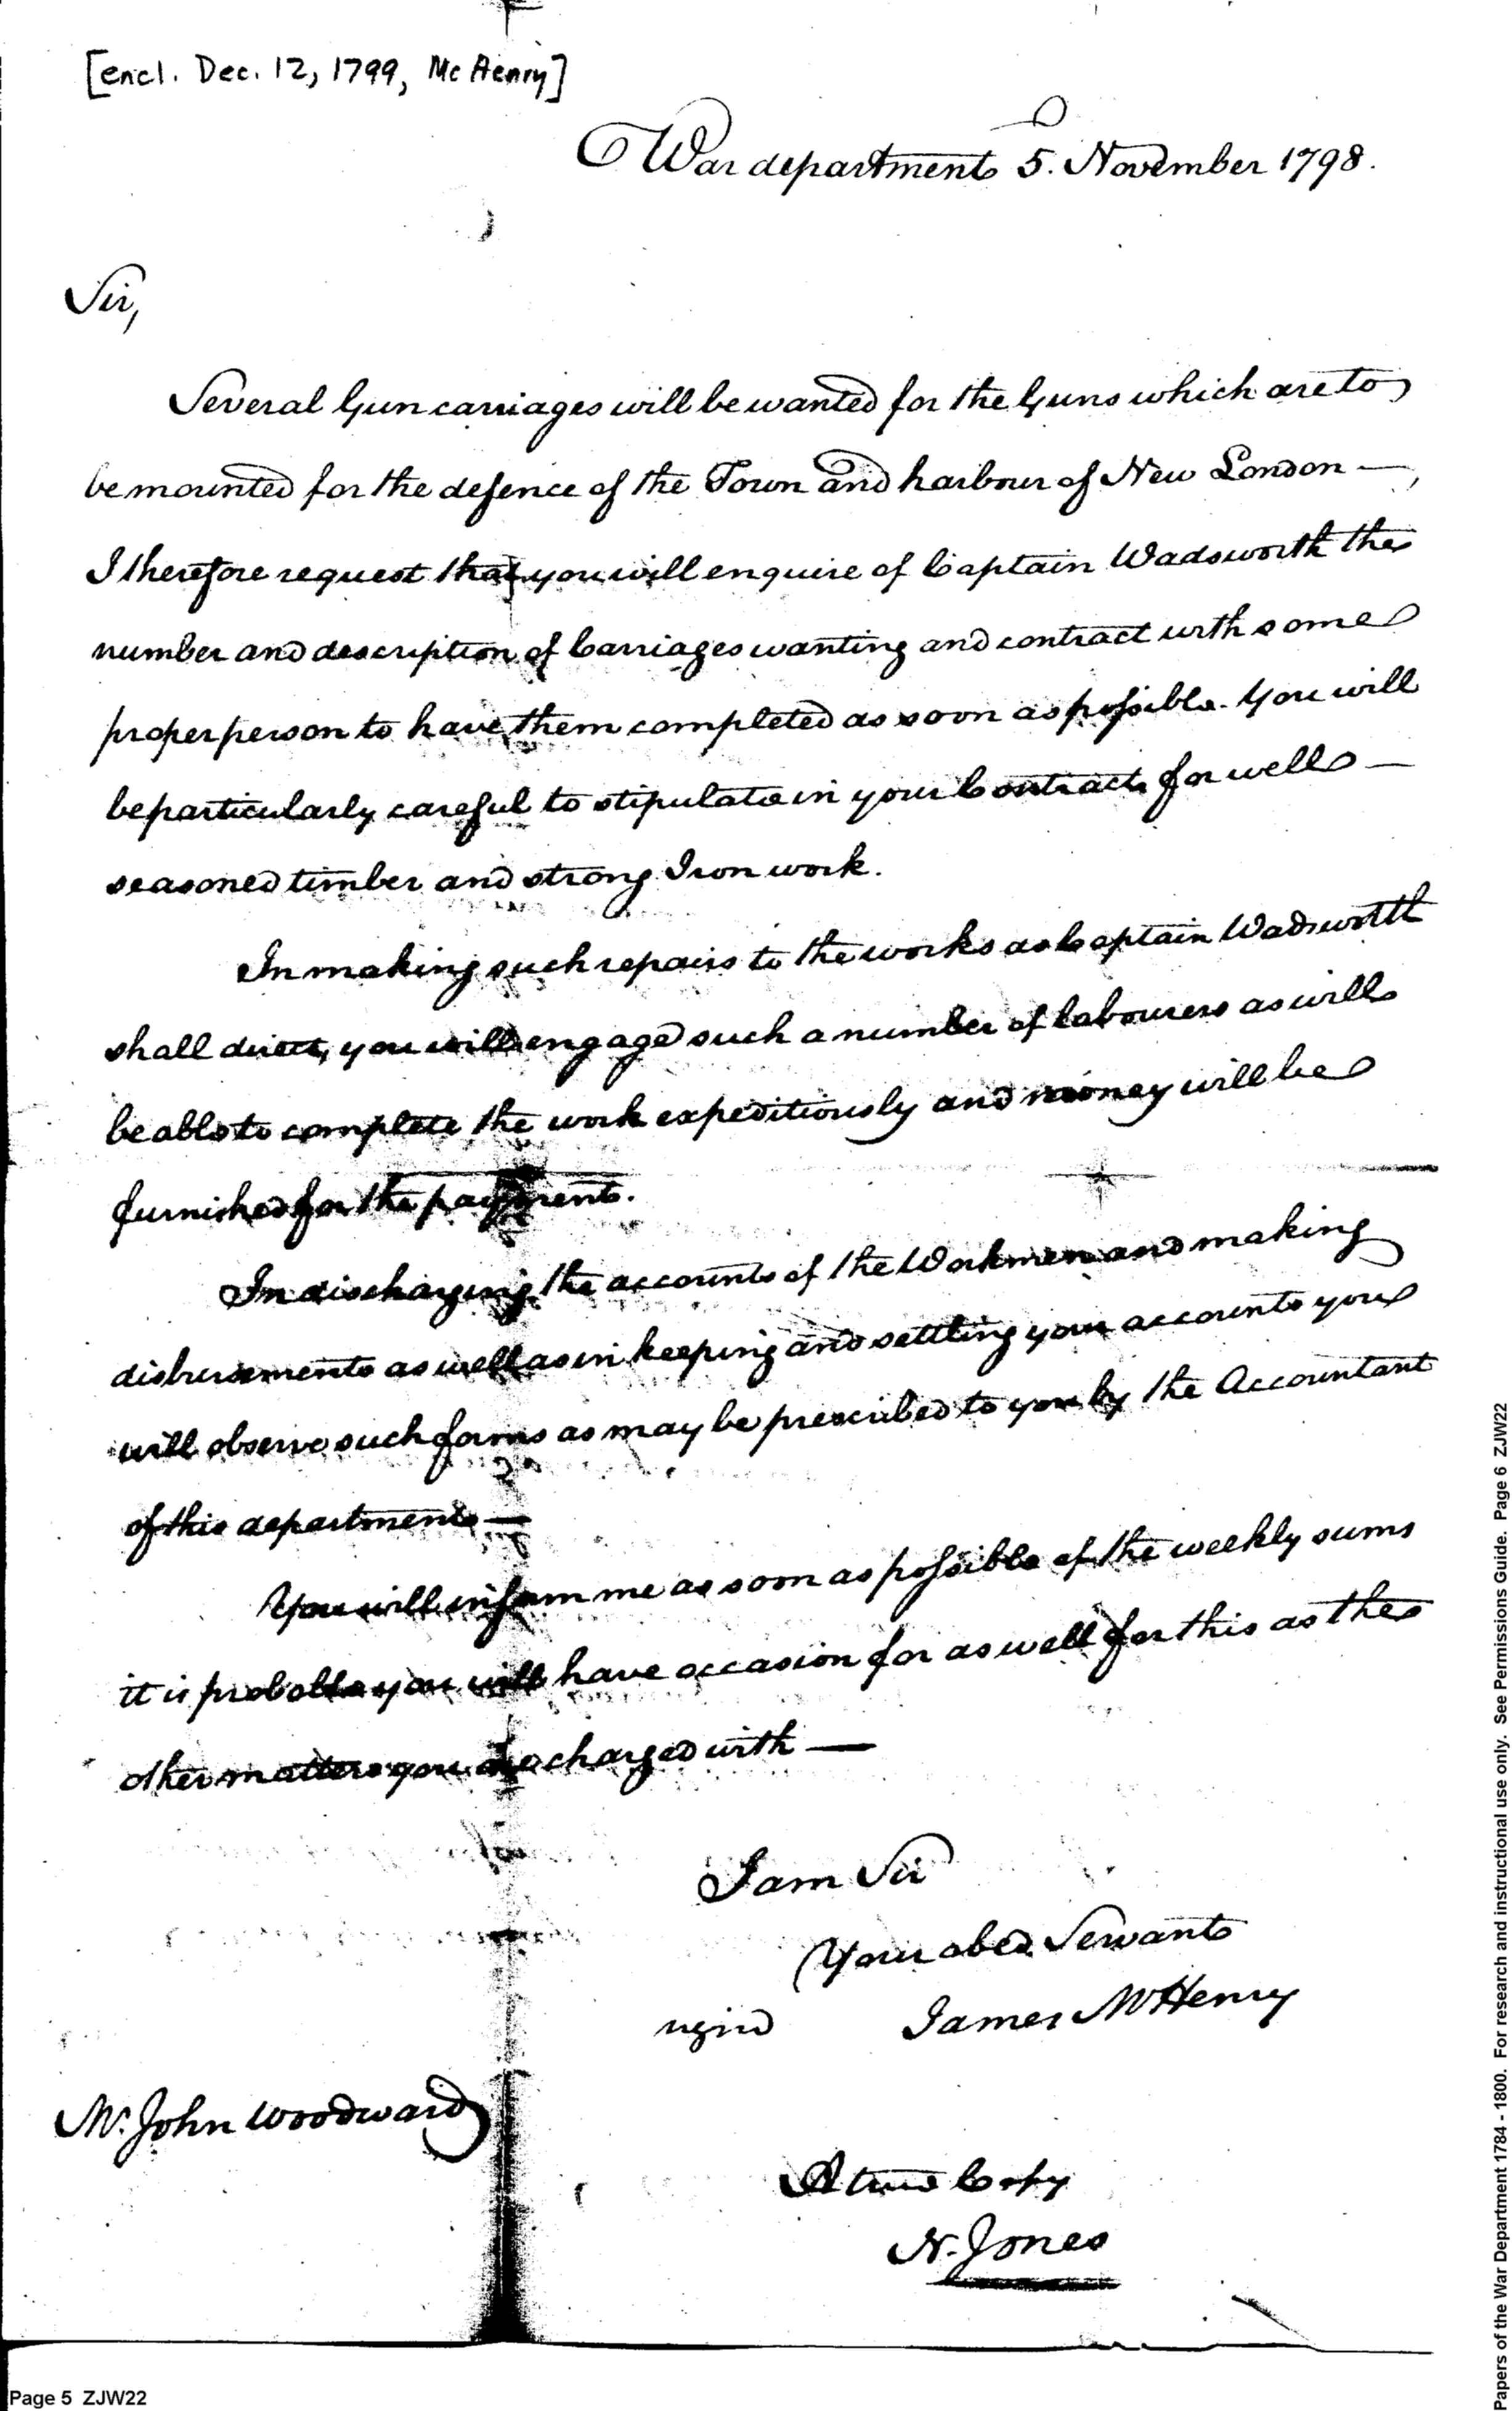 [encl. Dec. 12, 1799, McHenry]
War department 5. November 1798.
Sir,
Several Gun carriages will be wanted for the Guns which are to
be mounted for the defence of the Town and harbour of New London —
I therefore request that you will enquire of Captain Wadsworth the
number and description of Carriages wanting and contract with some
proper person to have them completed as soon as possible. You will
be particularly careful to stipulate in your Contract for well —
seasoned timber and strong Iron work.
In making such repairs to the works as Captain Wadsworth
shall direct, you will engage such a number of labourers as will
be able to complete the work expeditiously and money will be
furnished for the payment.
In discharging the accounts of the Workmen and making
disbursements as well as in keeping and settling your accounts you
will observe such forms as may be prescribed to you by the Accountant
of this department —
You will inform me as soon as possible of the weekly sums
it is probable you will have occasion for as well for this as the
other matters you are charged with —
I am Sir
Your obed. Servant
signd James McHenry
Mr. John Woodward
A true Copy
N. Jones
Page 5 ZJW22
Papers of the War Department 1784 - 1800. For research and instructional use only. See Permissions Guide. Page 6 ZJW22